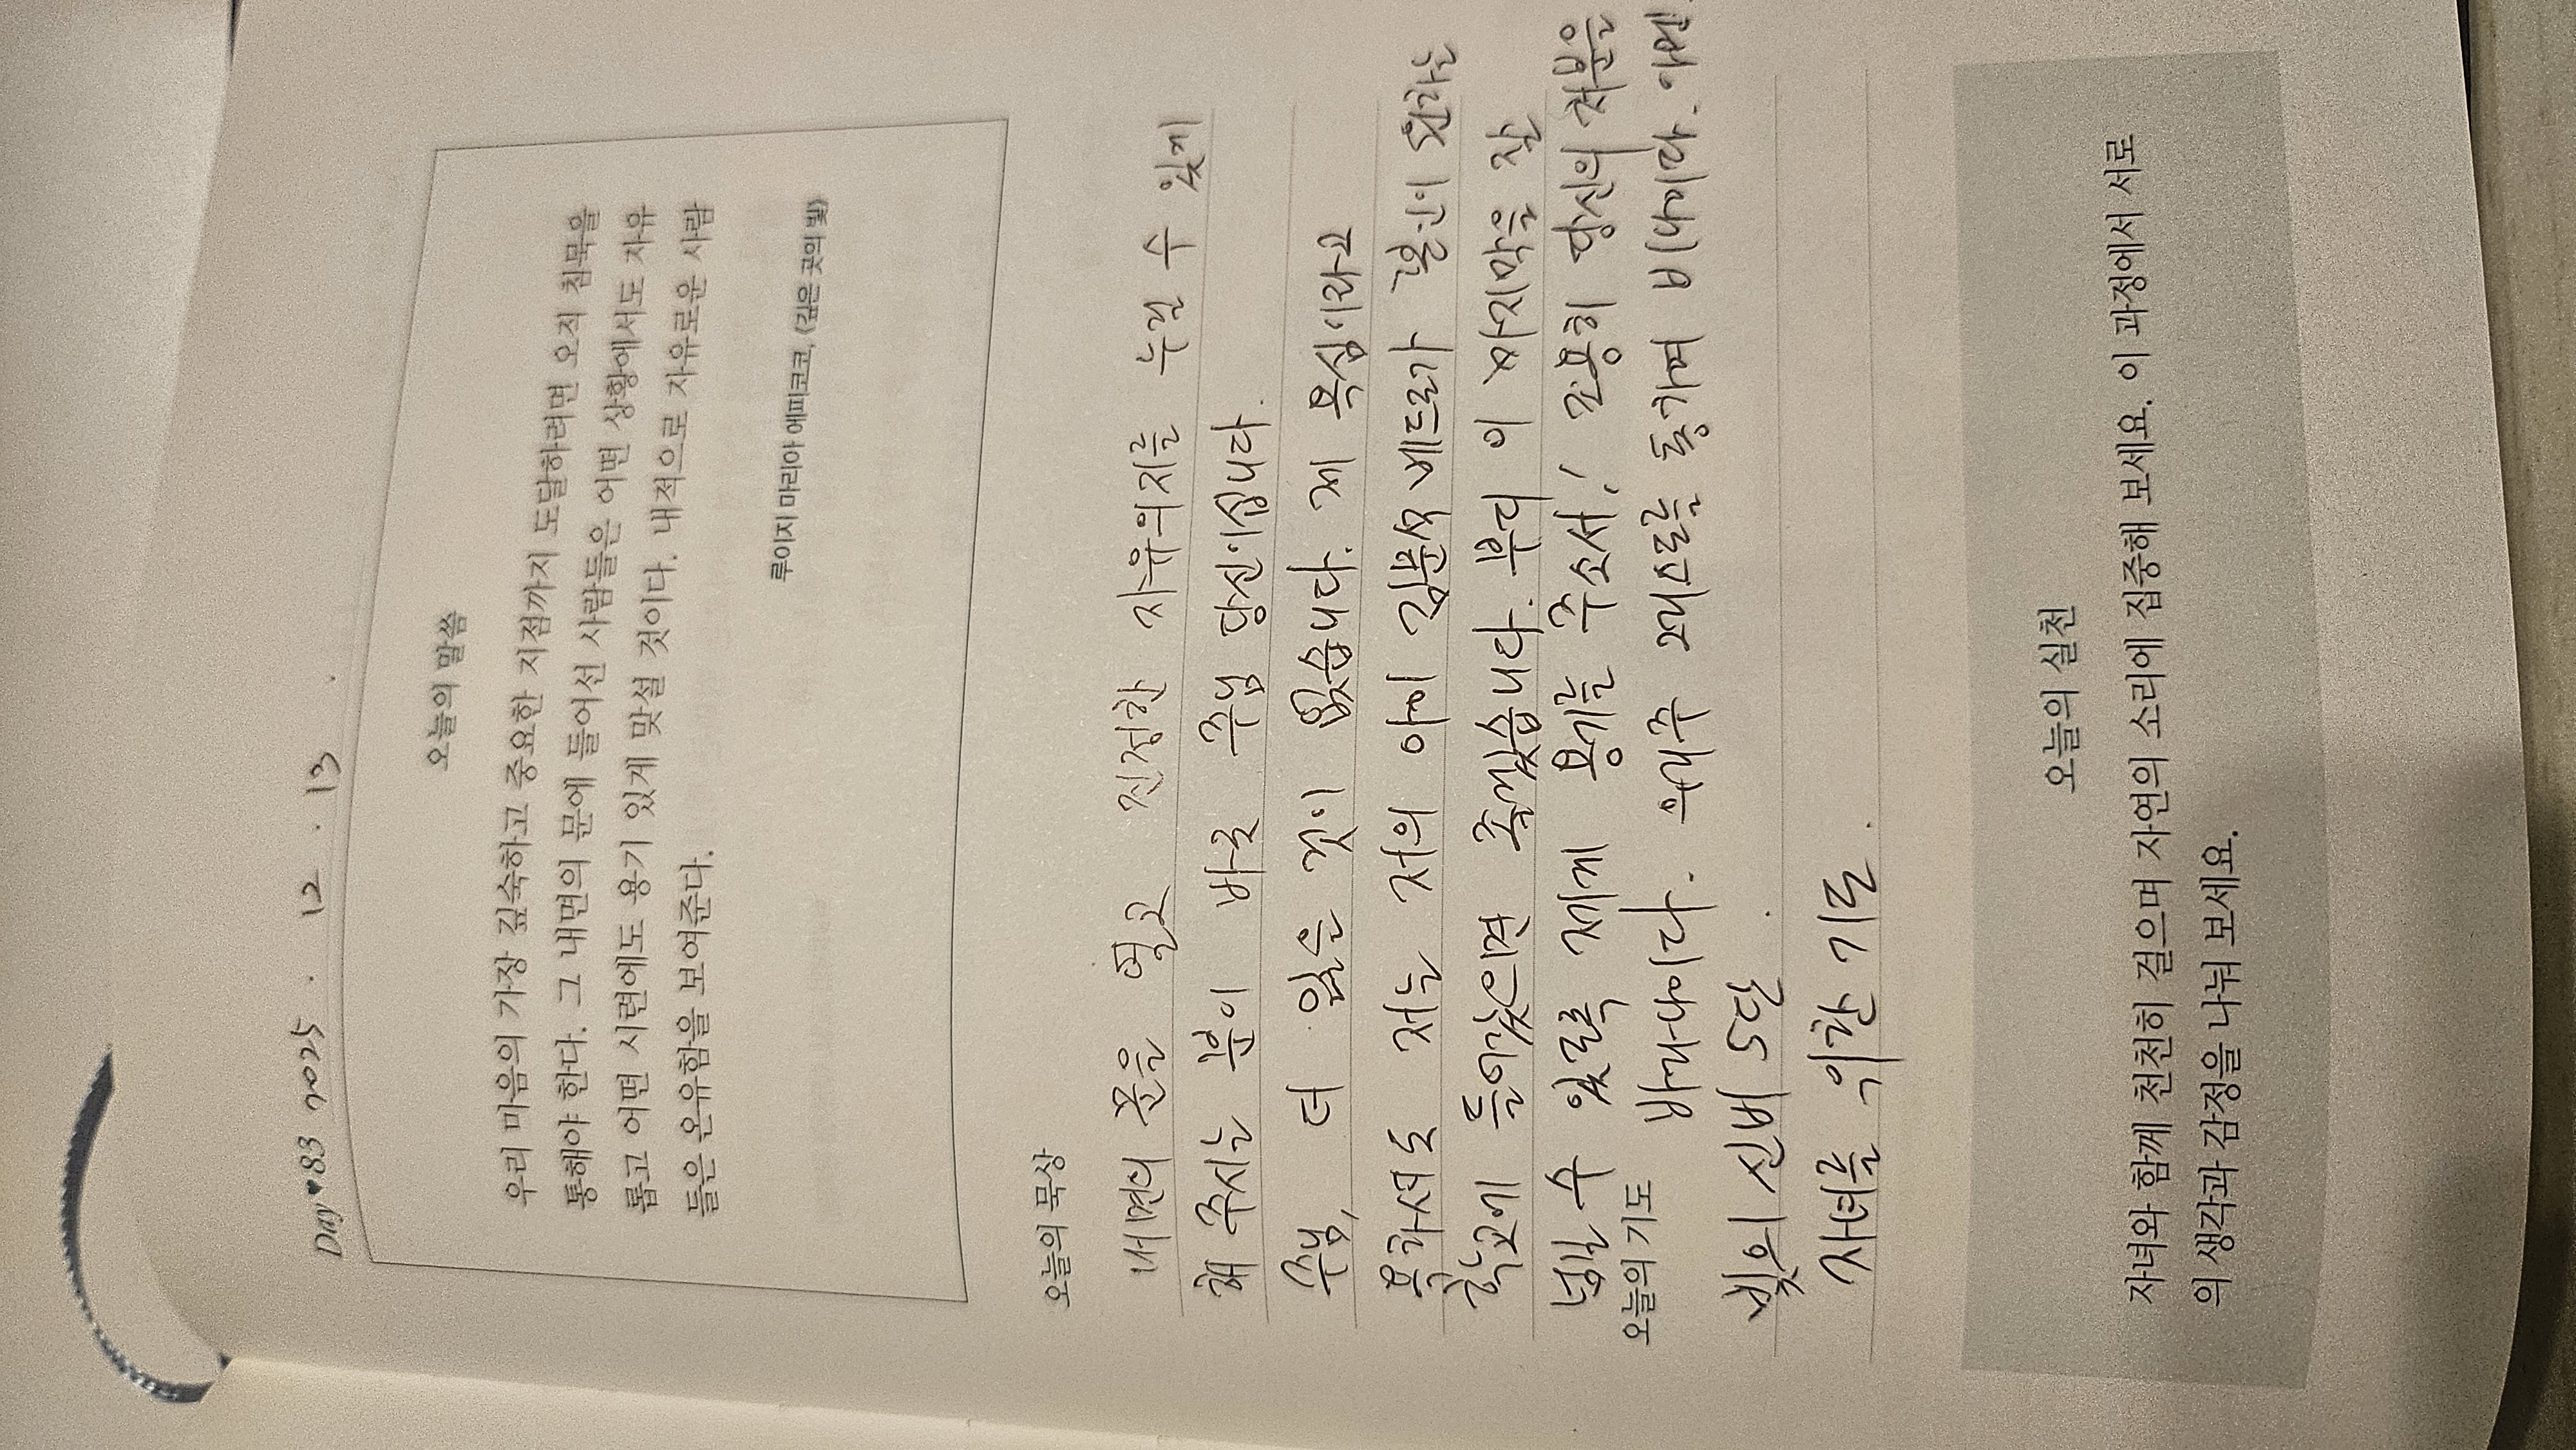 Day ♥ 83 2025 . 12 . 13 .
오늘의 말씀
우리 마음의 가장 깊숙하고 중요한 지점까지 도달하려면 오직 침묵을
통해야 한다. 그 내면의 문에 들어선 사람들은 어떤 상황에서도 자유
롭고 어떤 시련에도 용기 있게 맞설 것이다. 내적으로 자유로운 사람
들은 온유함을 보여준다.
루이지 마리아 에피코코, 《깊은 곳의 빛》
오늘의 묵상
내면의 문을 열고 진정한 자유의지를 누릴 수 있게
해 주시는 분이 바로 주님 당신이십니다.
주님, 더 잃을 것이 없습니다. 제 욕심이라고
욕하셔도 저는 저의 아이 김분석 베드로가 본인이 원하는
학교에 들어갔으면 좋겠습니다. 부디 이 마지막을 잘
넘길 수 있도록 제게 용기를 주소서! 조용히 당신의 처분을
바라나이다. 우리 주 그리스도를 통하여 비나이다. 아멘.
오늘의 기도
빛의 신비 5단
자녀를 위한 기도.
오늘의 실천
자녀와 함께 천천히 걸으며 자연의 소리에 집중해 보세요. 이 과정에서 서로
의 생각과 감정을 나눠 보세요.